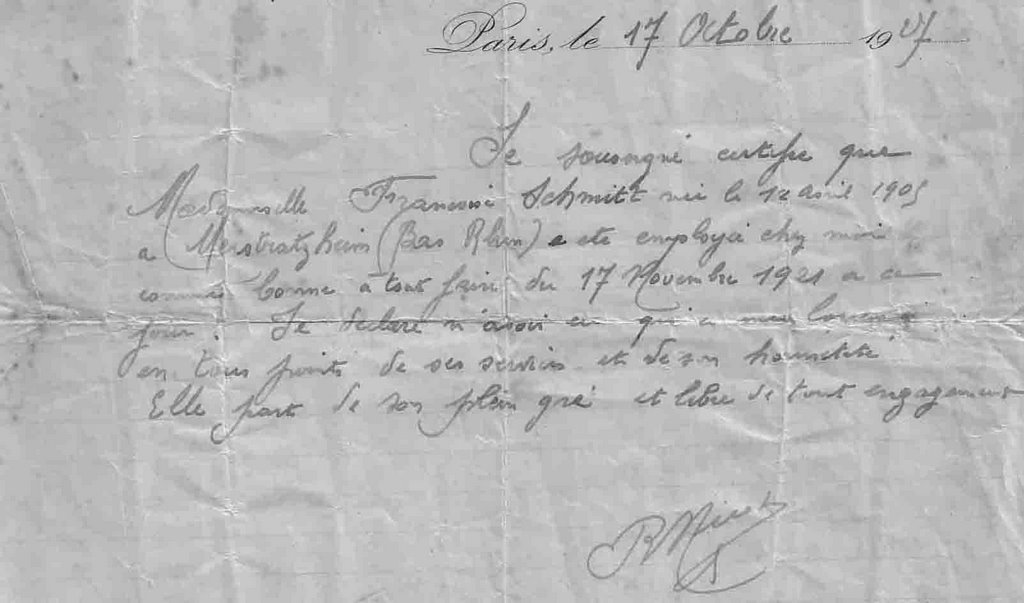 Paris, le 17 Octobre 1927
Je sousigné certifie que
Mademoiselle Françoise Schmitt née le 12 avril 1905
a Meistratzheim (Bas Rhin) a été employée chez moi
comme bonne à tout faire du 17 Novembre 1921 a ce
jour. Je declare n'avoir eu qu'a me louer
en tous points de ses services et de son honneteté
Elle part de son plein gré et libre de tout engagement